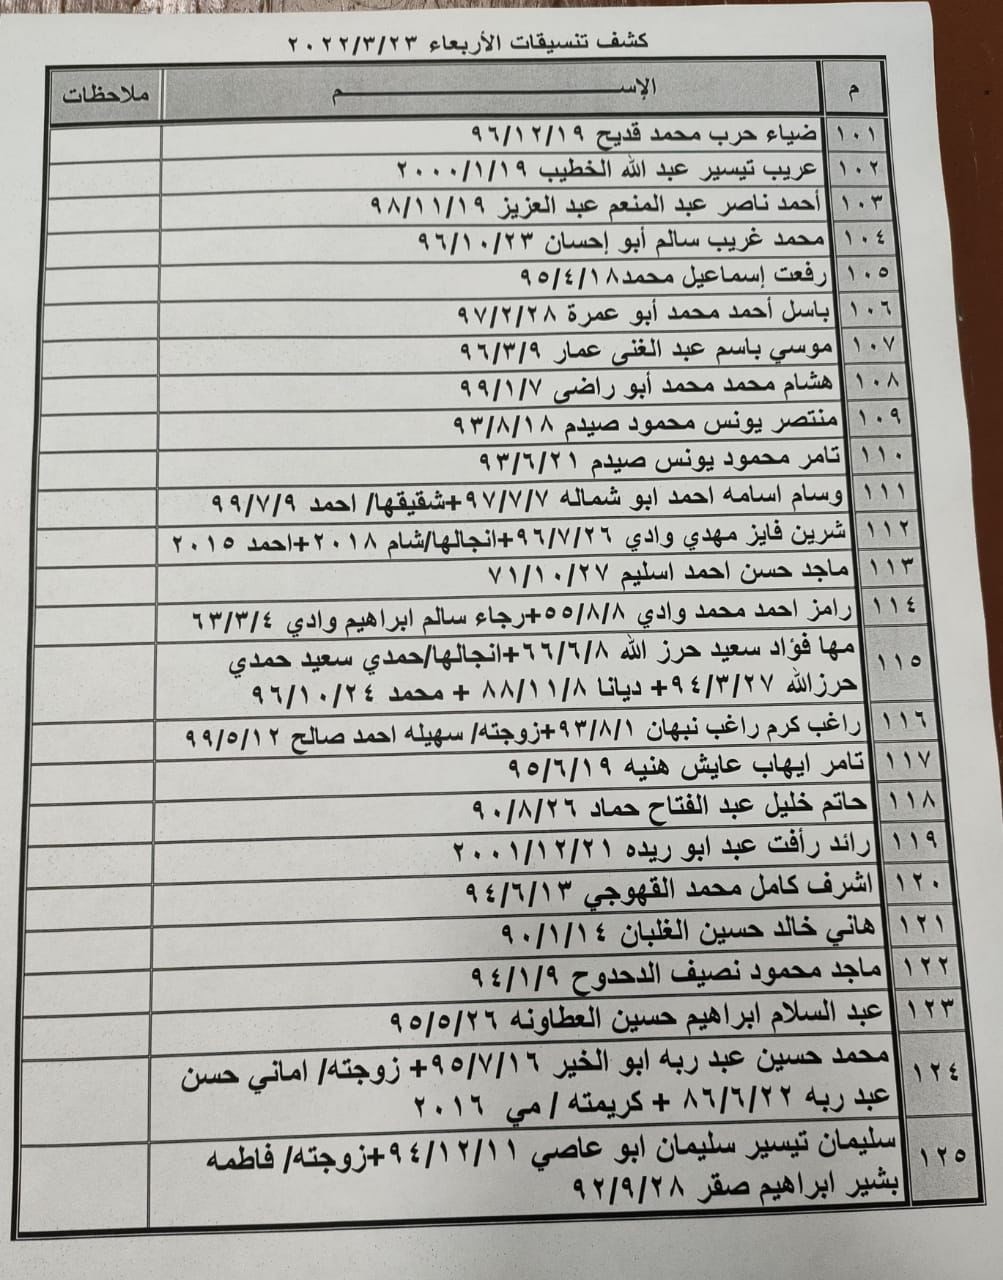 كشف تنسيقات الأربعاء ٢٠٢٢/٣/٢٣
م الإســـــــــــــــــــــــــــــــــــــــم ملاحظات
١٠١ ضياء حرب محمد قديح ٩٦/١٢/١٩
١٠٢ عريب تيسير عبد الله الخطيب ٢٠٠٠/١/١٩
١٠٣ أحمد ناصر عبد المنعم عبد العزيز ٩٨/١١/١٩
١٠٤ محمد غريب سالم أبو إحسان ٩٦/١٠/٢٣
١٠٥ رفعت إسماعيل محمد٩٥/٤/١٨
١٠٦ باسل أحمد محمد أبو عمرة ٩٧/٢/٢٨
١٠٧ موسي باسم عبد الغنى عمار ٩٦/٣/٩
١٠٨ هشام محمد محمد أبو راضى ٩٩/١/٧
١٠٩ منتصر يونس محمود صيدم ٩٣/٨/١٨
١١٠ تامر محمود يونس صيدم ٩٣/٦/٢١
١١١ وسام اسامه احمد ابو شماله ٩٧/٧/٧+شقيقها/ احمد ٩٩/٧/٩
١١٢ شرين فايز مهدي وادي ٩٦/٧/٢٦+انجالها/شام ٢٠١٨+احمد ٢٠١٥
١١٣ ماجد حسن احمد اسليم ٧١/١٠/٢٧
١١٤ رامز احمد محمد وادي ٥٥/٨/٨+رجاء سالم ابراهيم وادي ٦٣/٣/٤
١١٥ مها فؤاد سعيد حرز الله ٦٦/٦/٨+انجالها/حمدي سعيد حمدي
حرزالله ٩٤/٣/٢٧+ ديانا ٨٨/١١/٨ + محمد ٩٦/١٠/٢٤
١١٦ راغب كرم راغب نبهان ٩٣/٨/١+زوجته/ سهيله احمد صالح ٩٩/٥/١٢
١١٧ تامر ايهاب عايش هنيه ٩٥/٦/١٩
١١٨ حاتم خليل عبد الفتاح حماد ٩٠/٨/٢٦
١١٩ رائد رأفت عبد ابو ريده ٢٠٠١/١٢/٢١
١٢٠ اشرف كامل محمد القهوجي ٩٤/٦/١٣
١٢١ هاني خالد حسين الغلبان ٩٠/١/١٤
١٢٢ ماجد محمود نصيف الدحدوح ٩٤/١/٩
١٢٣ عبد السلام ابراهيم حسين العطاونه ٩٥/٥/٢٦
١٢٤ محمد حسين عبد ربه ابو الخير ٩٥/٧/١٦+ زوجته/ اماني حسن
عبد ربه ٨٦/٦/٢٢ + كريمته / مي ٢٠١٦
١٢٥ سليمان تيسير سليمان ابو عاصي ٩٤/١٢/١١+زوجته/ فاطمه
بشير ابراهيم صقر ٩٢/٩/٢٨